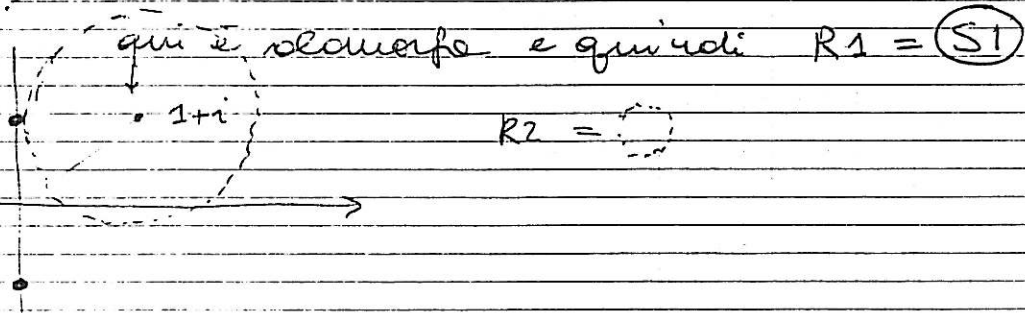 qui è olomorfa e quindi R1 = SI
1+i
R2 =